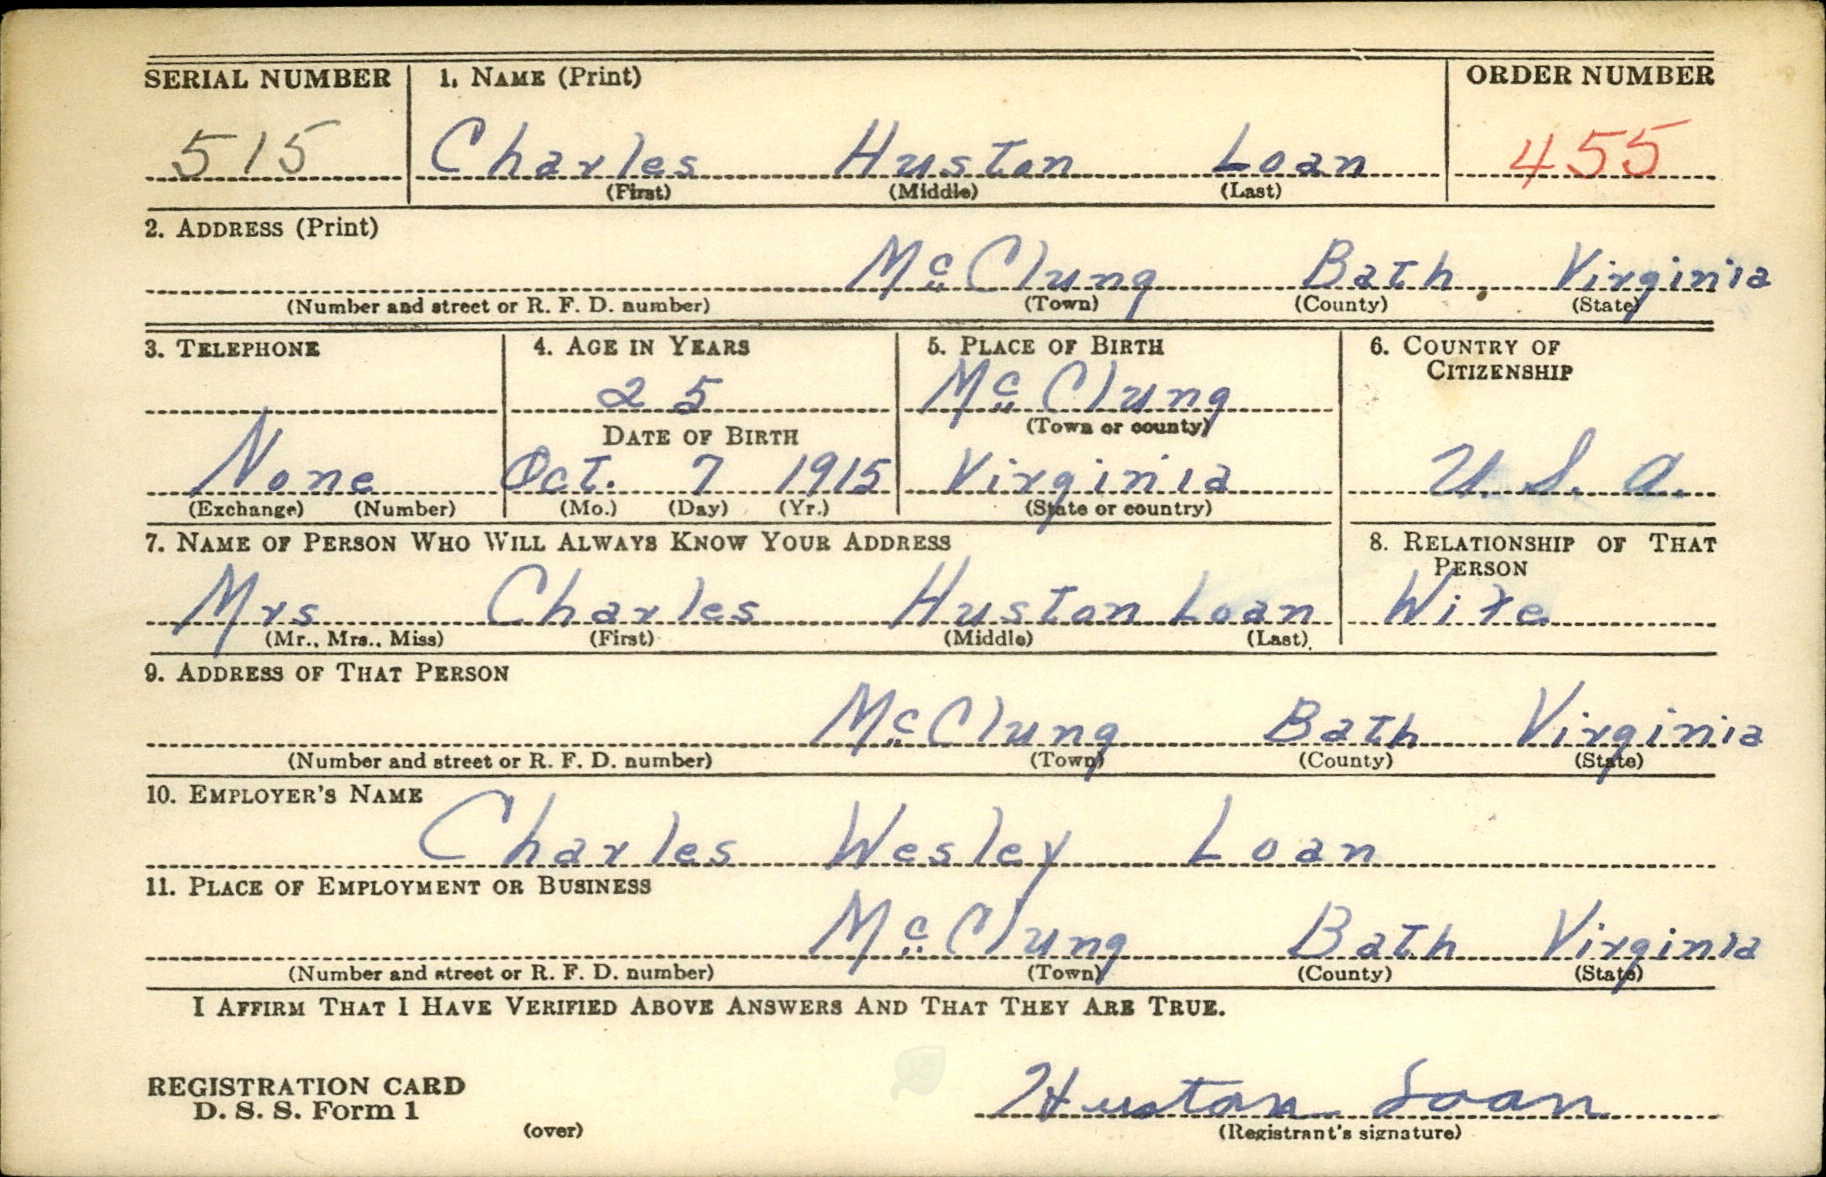 SERIAL NUMBER 1. NAME (Print) ORDER NUMBER
515 Charles Huston Loan 455
(First) (Middle) (Last)
2. ADDRESS (Print)
McClung Bath Virginia
(Number and street or R. F. D. number) (Town) (County) (State)
3. TELEPHONE 4. AGE IN YEARS 5. PLACE OF BIRTH 6. COUNTRY OF
CITIZENSHIP
25 McClung
DATE OF BIRTH (Town or county)
None Oct. 7 1915 Virginia U. S. A.
(Exchange) (Number) (Mo.) (Day) (Yr.) (State or country)
7. NAME OF PERSON WHO WILL ALWAYS KNOW YOUR ADDRESS 8. RELATIONSHIP OF THAT
PERSON
Mrs Charles Huston Loan Wife
(Mr., Mrs., Miss) (First) (Middle) (Last)
9. ADDRESS OF THAT PERSON
McClung Bath Virginia
(Number and street or R. F. D. number) (Town) (County) (State)
10. EMPLOYER'S NAME
Charles Wesley Loan
11. PLACE OF EMPLOYMENT OR BUSINESS
McClung Bath Virginia
(Number and street or R. F. D. number) (Town) (County) (State)
I AFFIRM THAT I HAVE VERIFIED ABOVE ANSWERS AND THAT THEY ARE TRUE.
REGISTRATION CARD
D. S. S. Form 1 Huston Loan
(over) (Registrant's signature)